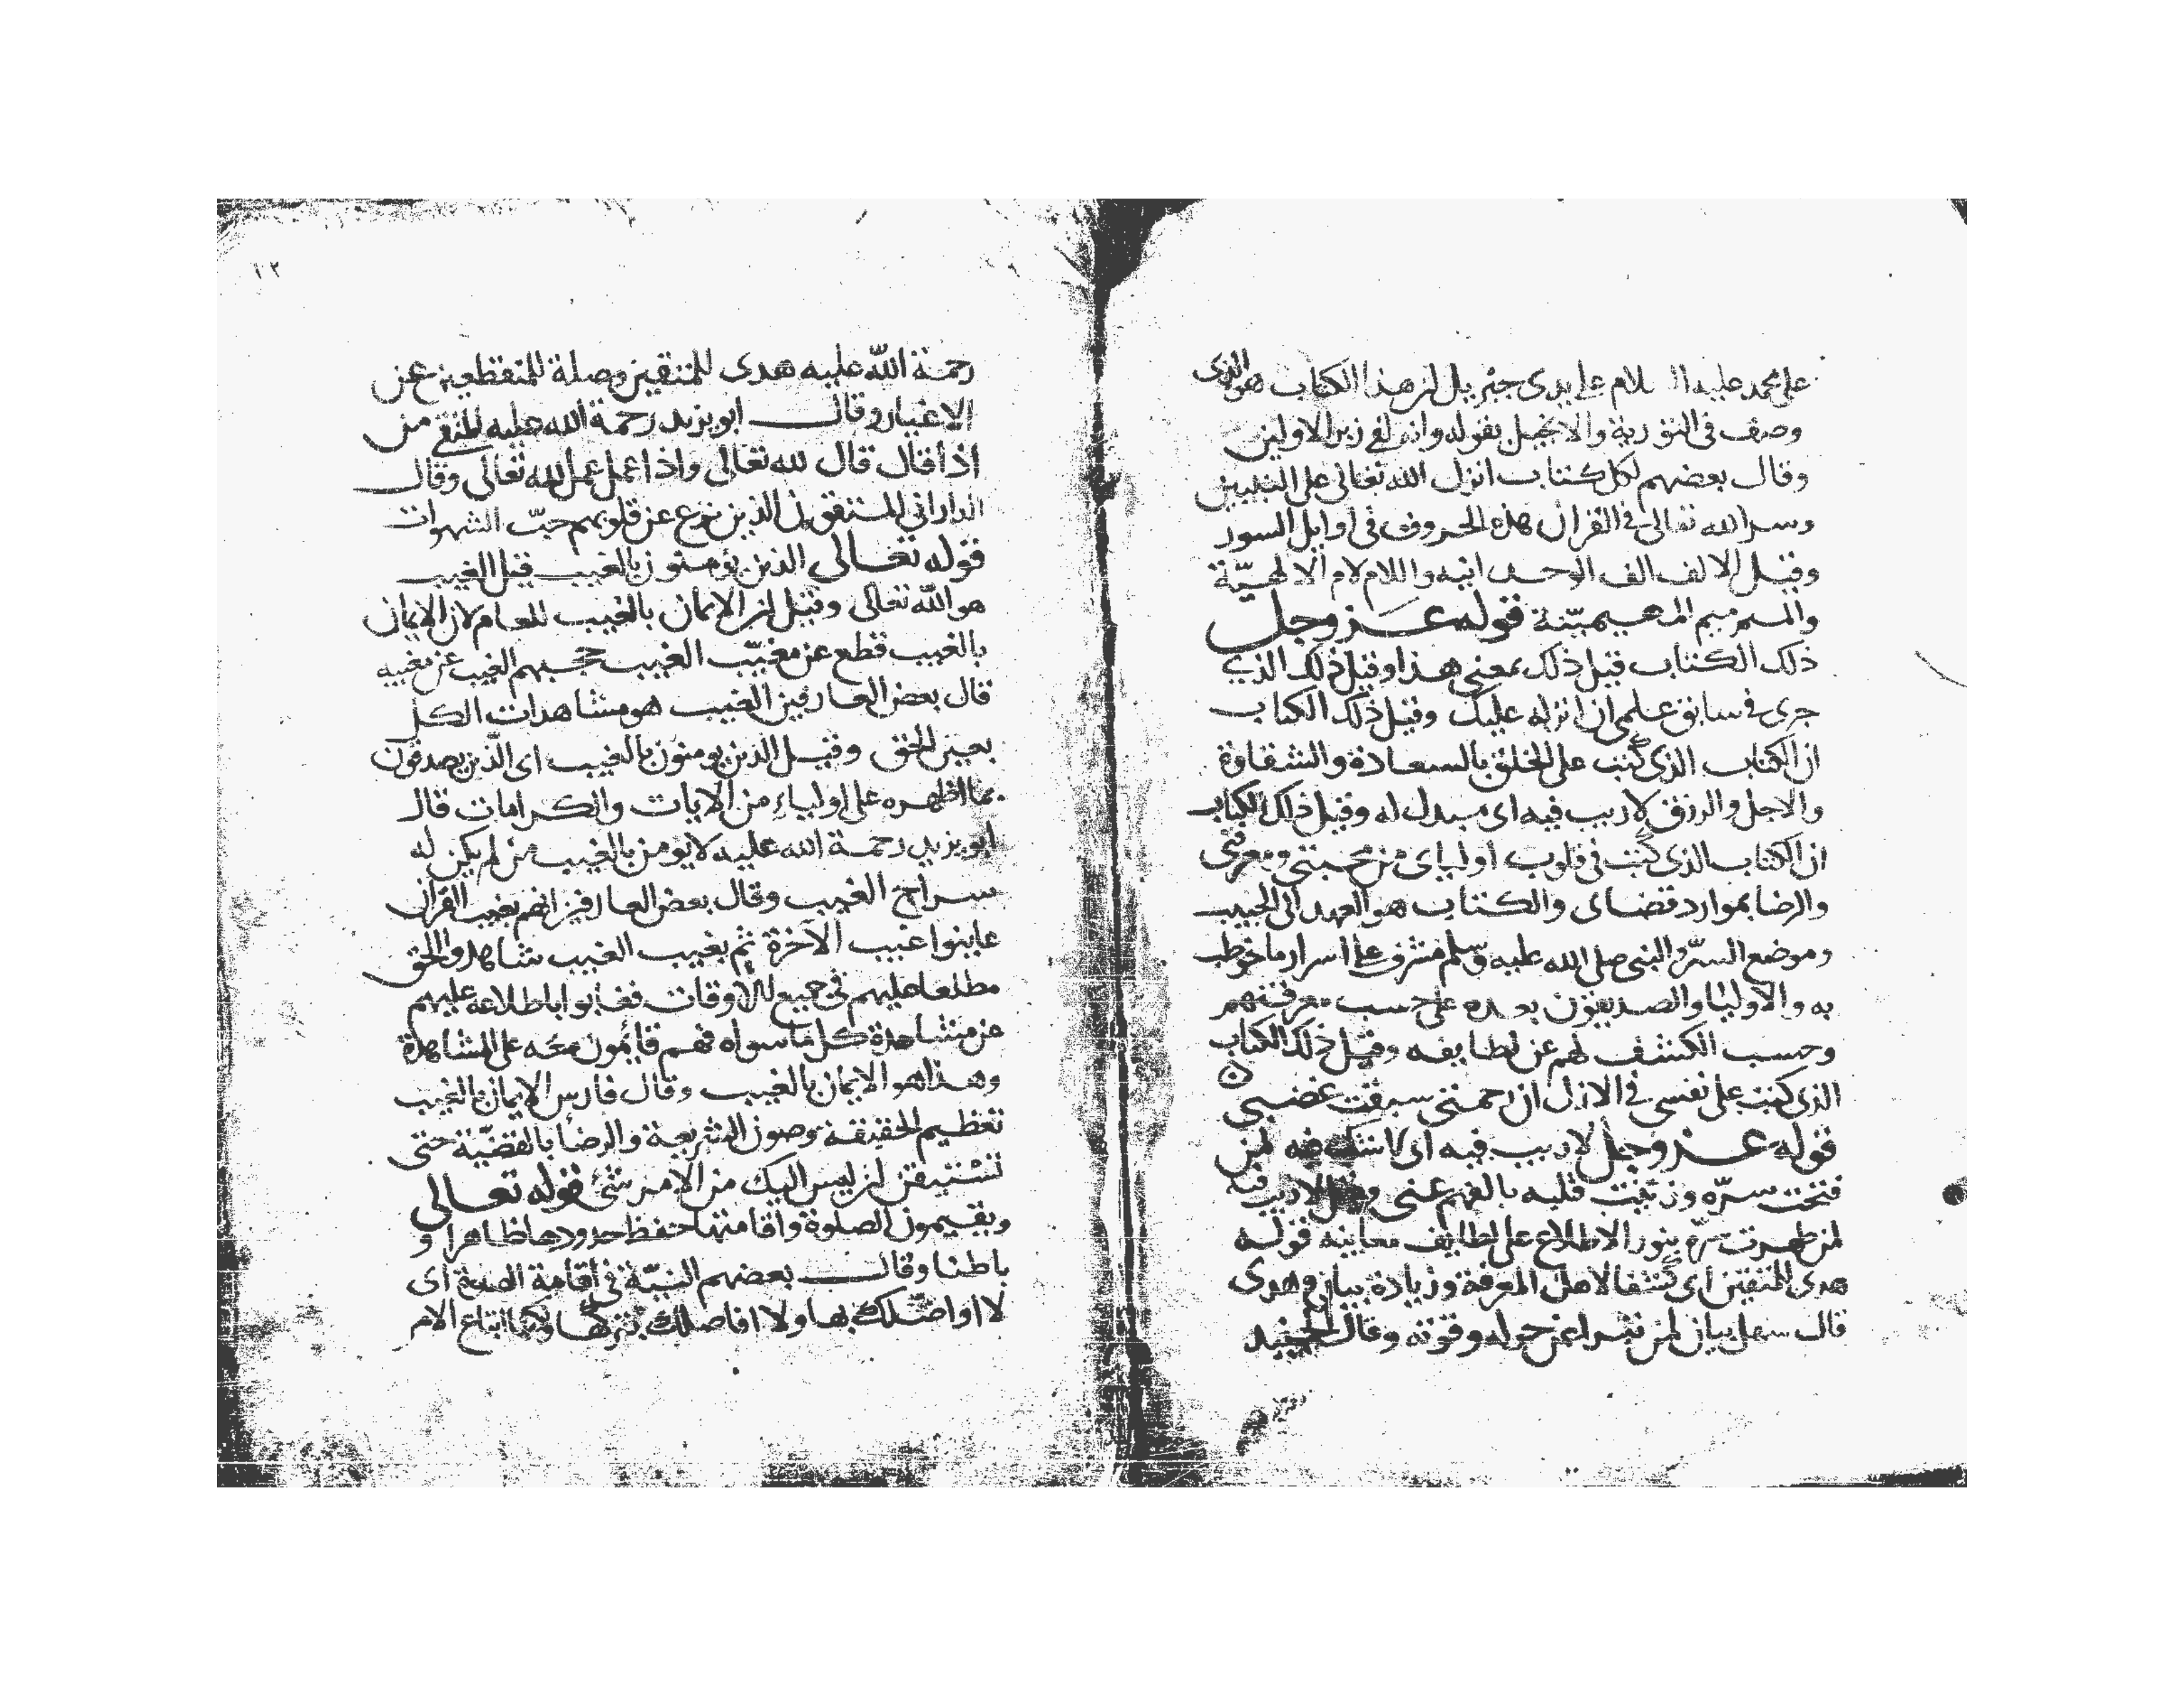 على محمد عليه السلام على يدى جبريل ان هذا الكتاب هو الذى
وصف فى التورية والانجيل بقوله وانه لفى زبر الاولين
وقال بعضهم لكل كتاب انزل الله تعالى على النبيين
وسر الله تعالى فى القران هذه الحروف فى اوايل السور
وقيل الالف الف الوحدانيه واللام لام الالهيّة
والميم ميم المهيمنيّة قوله عز وجل
ذلك الكتاب قيل ذلك بمعنى هذا وقيل ذلك الذى
جرى فى سابق علمى ان انزله عليك وقيل ذلك الكتاب
ان الكتاب الذى كتبت على الخلق بالسعادة والشقاوة
والاجل والرزق لاريب فيه اى مبدل له وقيل ذلك الكتاب
ان الكتاب الذى كتبت فى قلوب اوليائ من محبتى ومعرفتى
والرضا بموارد قضاى والكتاب هو العهد الى الحبيب
وموضع السرّ والنبى صلى الله عليه وسلم مشرف على اسرار ما خوطب
به والاوليا والصديقون بعده على حسب معرفتهم
وحسب الكشف لهم عن لطايفه وقيل ذلك الكتاب
الذى كتبت على نفسى فى الازل ان رحمتى سبقت غضبى
قوله عز وجل لاريب فيه اى لاشك فيه لمن
فتحت سرّه وزينت قلبه بالفهم عنى وقيل لاريب فيه
لمن طهرت سرّه بنور الاطلاع على لطايف معاينه قوله
هدى للمتقين اى كشفا لاهل المعرفة وزيادة بيان وهدى
قال سهل بيان لمن تبرا عن حوله وقوته وقال الجنيد
١٢
رحمة الله عليه هدى للمتقين وصلة للمنقطعين عن
الاغيار وقال ابو يزيد رحمة الله عليه المتقى من
اذا قال قال لله تعالى واذا عمل عمل لله تعالى وقال
الدارانى المتقون الذين نزع عن قلوبهم حبّ الشهوات
قوله تعالى الذين يؤمنون بالغيب قيل الغيب
هو الله تعالى وقيل ان الايمان بالغيب للعام لان الايمان
بالغيب قطع عن مغيّب الغيب حجبهم الغيب عن مغيبه
قال بعض العارفين الغيب هو مشاهدات الكل
بعين الحق وقيل الذين يومنون بالغيب اى الذين يصدقون
بما اظهره على اولياء من الايات والكرامات قال
ابو يزيد رحمة الله عليه لايومن بالغيب من لم يكن له
سراج الغيب وقال بعض العارفين انهم بغيب القران
عاينوا غيب الآخرة ثم بغيب الغيب شاهدوا الحق
مطلعا عليهم فى جميع الاوقات فغابوا باطلاعه عليهم
عن مشاهدة كل ما سواه فهم قائمون معه على المشاهدة
وهذا هو الايمان بالغيب وقال فارس الايمان بالغيب
تعظيم الحقيقة وصون الشريعة والرضا بالقضيّة حتى
تستيقن ان ليس اليك من الامر شئ قوله تعالى
ويقيمون الصلوة واقامتها حفظ حدودها ظاهرا و
باطنا وقال بعضهم النيّة فى اقامة الصلوة اى
لا اواصلك بها ولا افاصلك بتركها وانما اتباع الامر